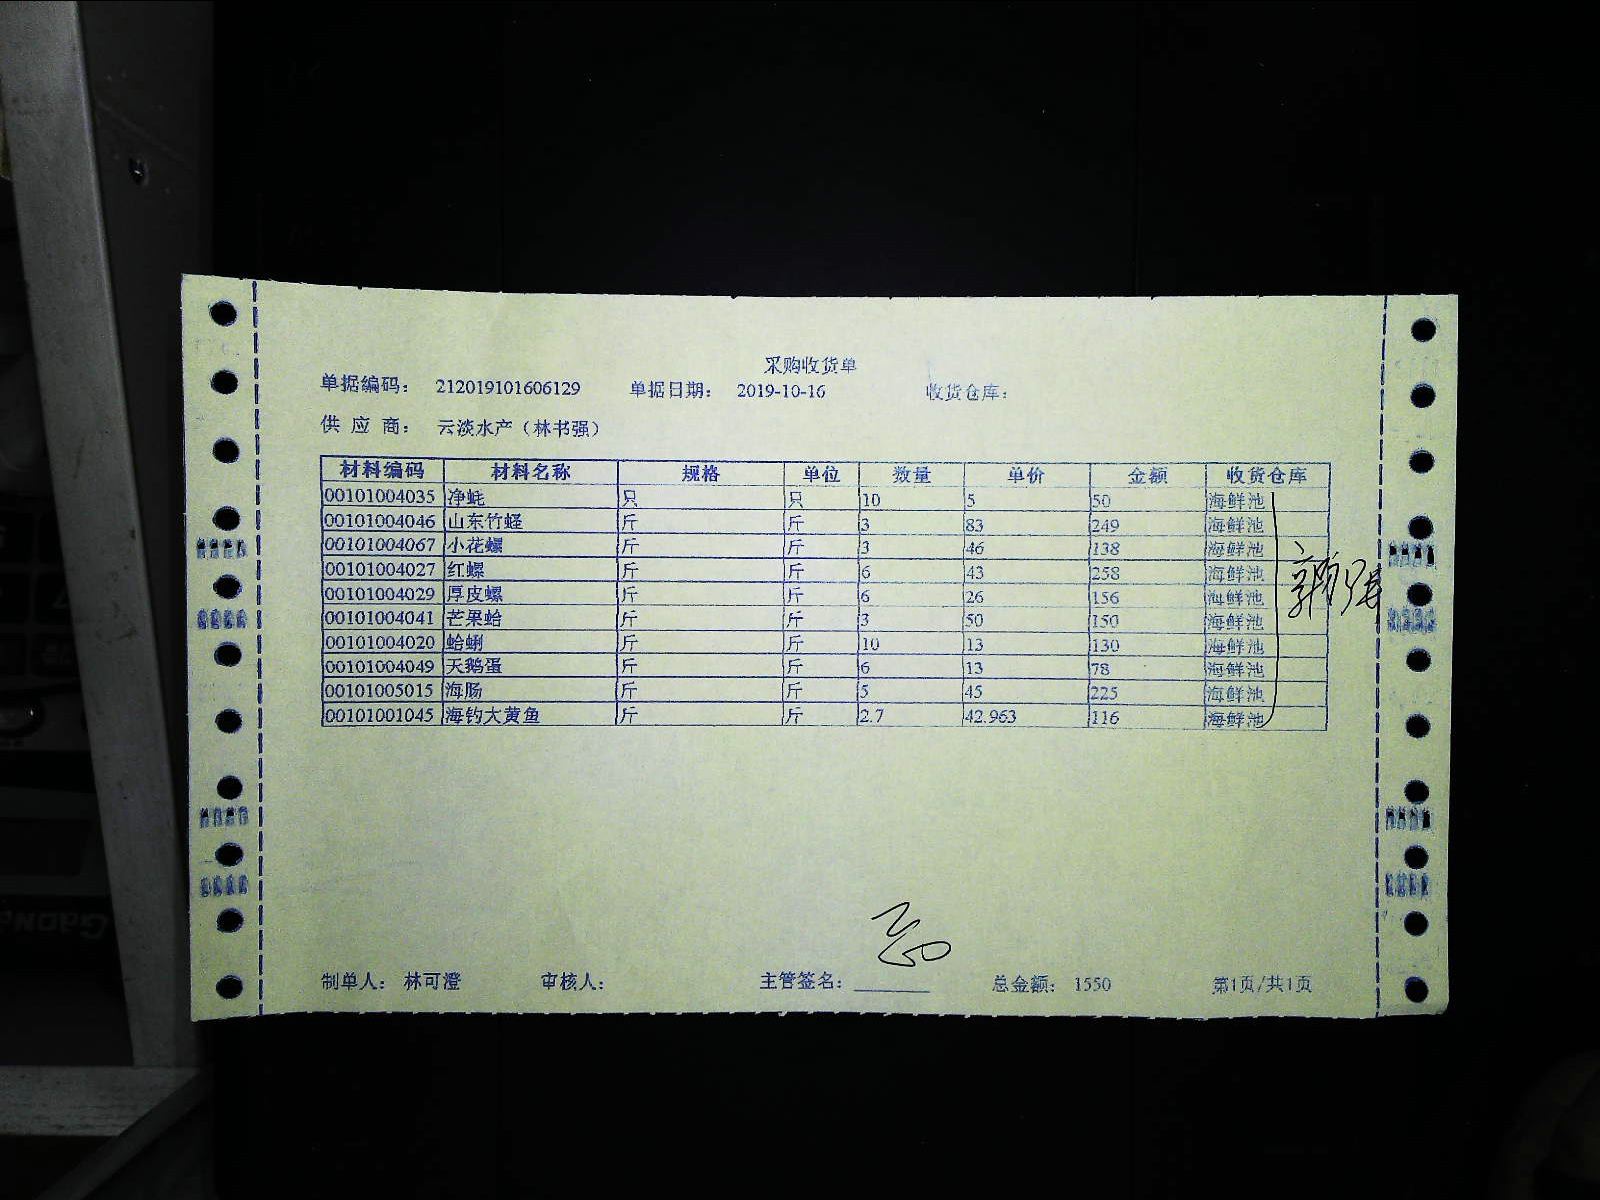 采购收货单
单据编码： 212019101606129 单据日期： 2019-10-16 收货仓库：
供 应 商： 云淡水产（林书强）
材料编码 材料名称 规格 单位 数量 单价 金额 收货仓库
00101004035 净蚝 只 只 10 5 50 海鲜池
00101004046 山东竹蛏 斤 斤 3 83 249 海鲜池
00101004067 小花螺 斤 斤 3 46 138 海鲜池
00101004027 红螺 斤 斤 6 43 258 海鲜池
00101004029 厚皮螺 斤 斤 6 26 156 海鲜池
00101004041 芒果蛤 斤 斤 3 50 150 海鲜池
00101004020 蛤蜊 斤 斤 10 13 130 海鲜池
00101004049 天鹅蛋 斤 斤 6 13 78 海鲜池
00101005015 海肠 斤 斤 5 45 225 海鲜池
00101001045 海钓大黄鱼 斤 斤 2.7 42.963 116 海鲜池
制单人： 林可澄 审核人： 主管签名： 总金额： 1550 第1页/共1页